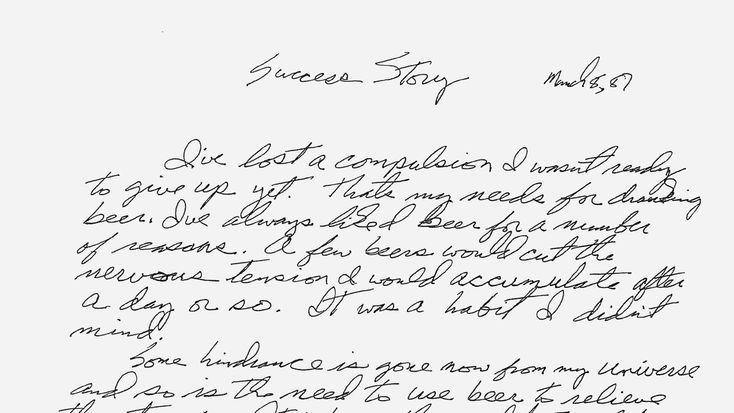 Success Story March 8, 87
I've lost a compulsion I wasn't ready
to give up yet. Thats my needs for drinking
beer. I've always liked Beer for a number
of reasons. A few beers would cut the
nervous tension I would accumulate after
a day or so. It was a habit I didn't
mind.
Some hindrance is gone now from my Universe
and so is the need to use beer to relieve